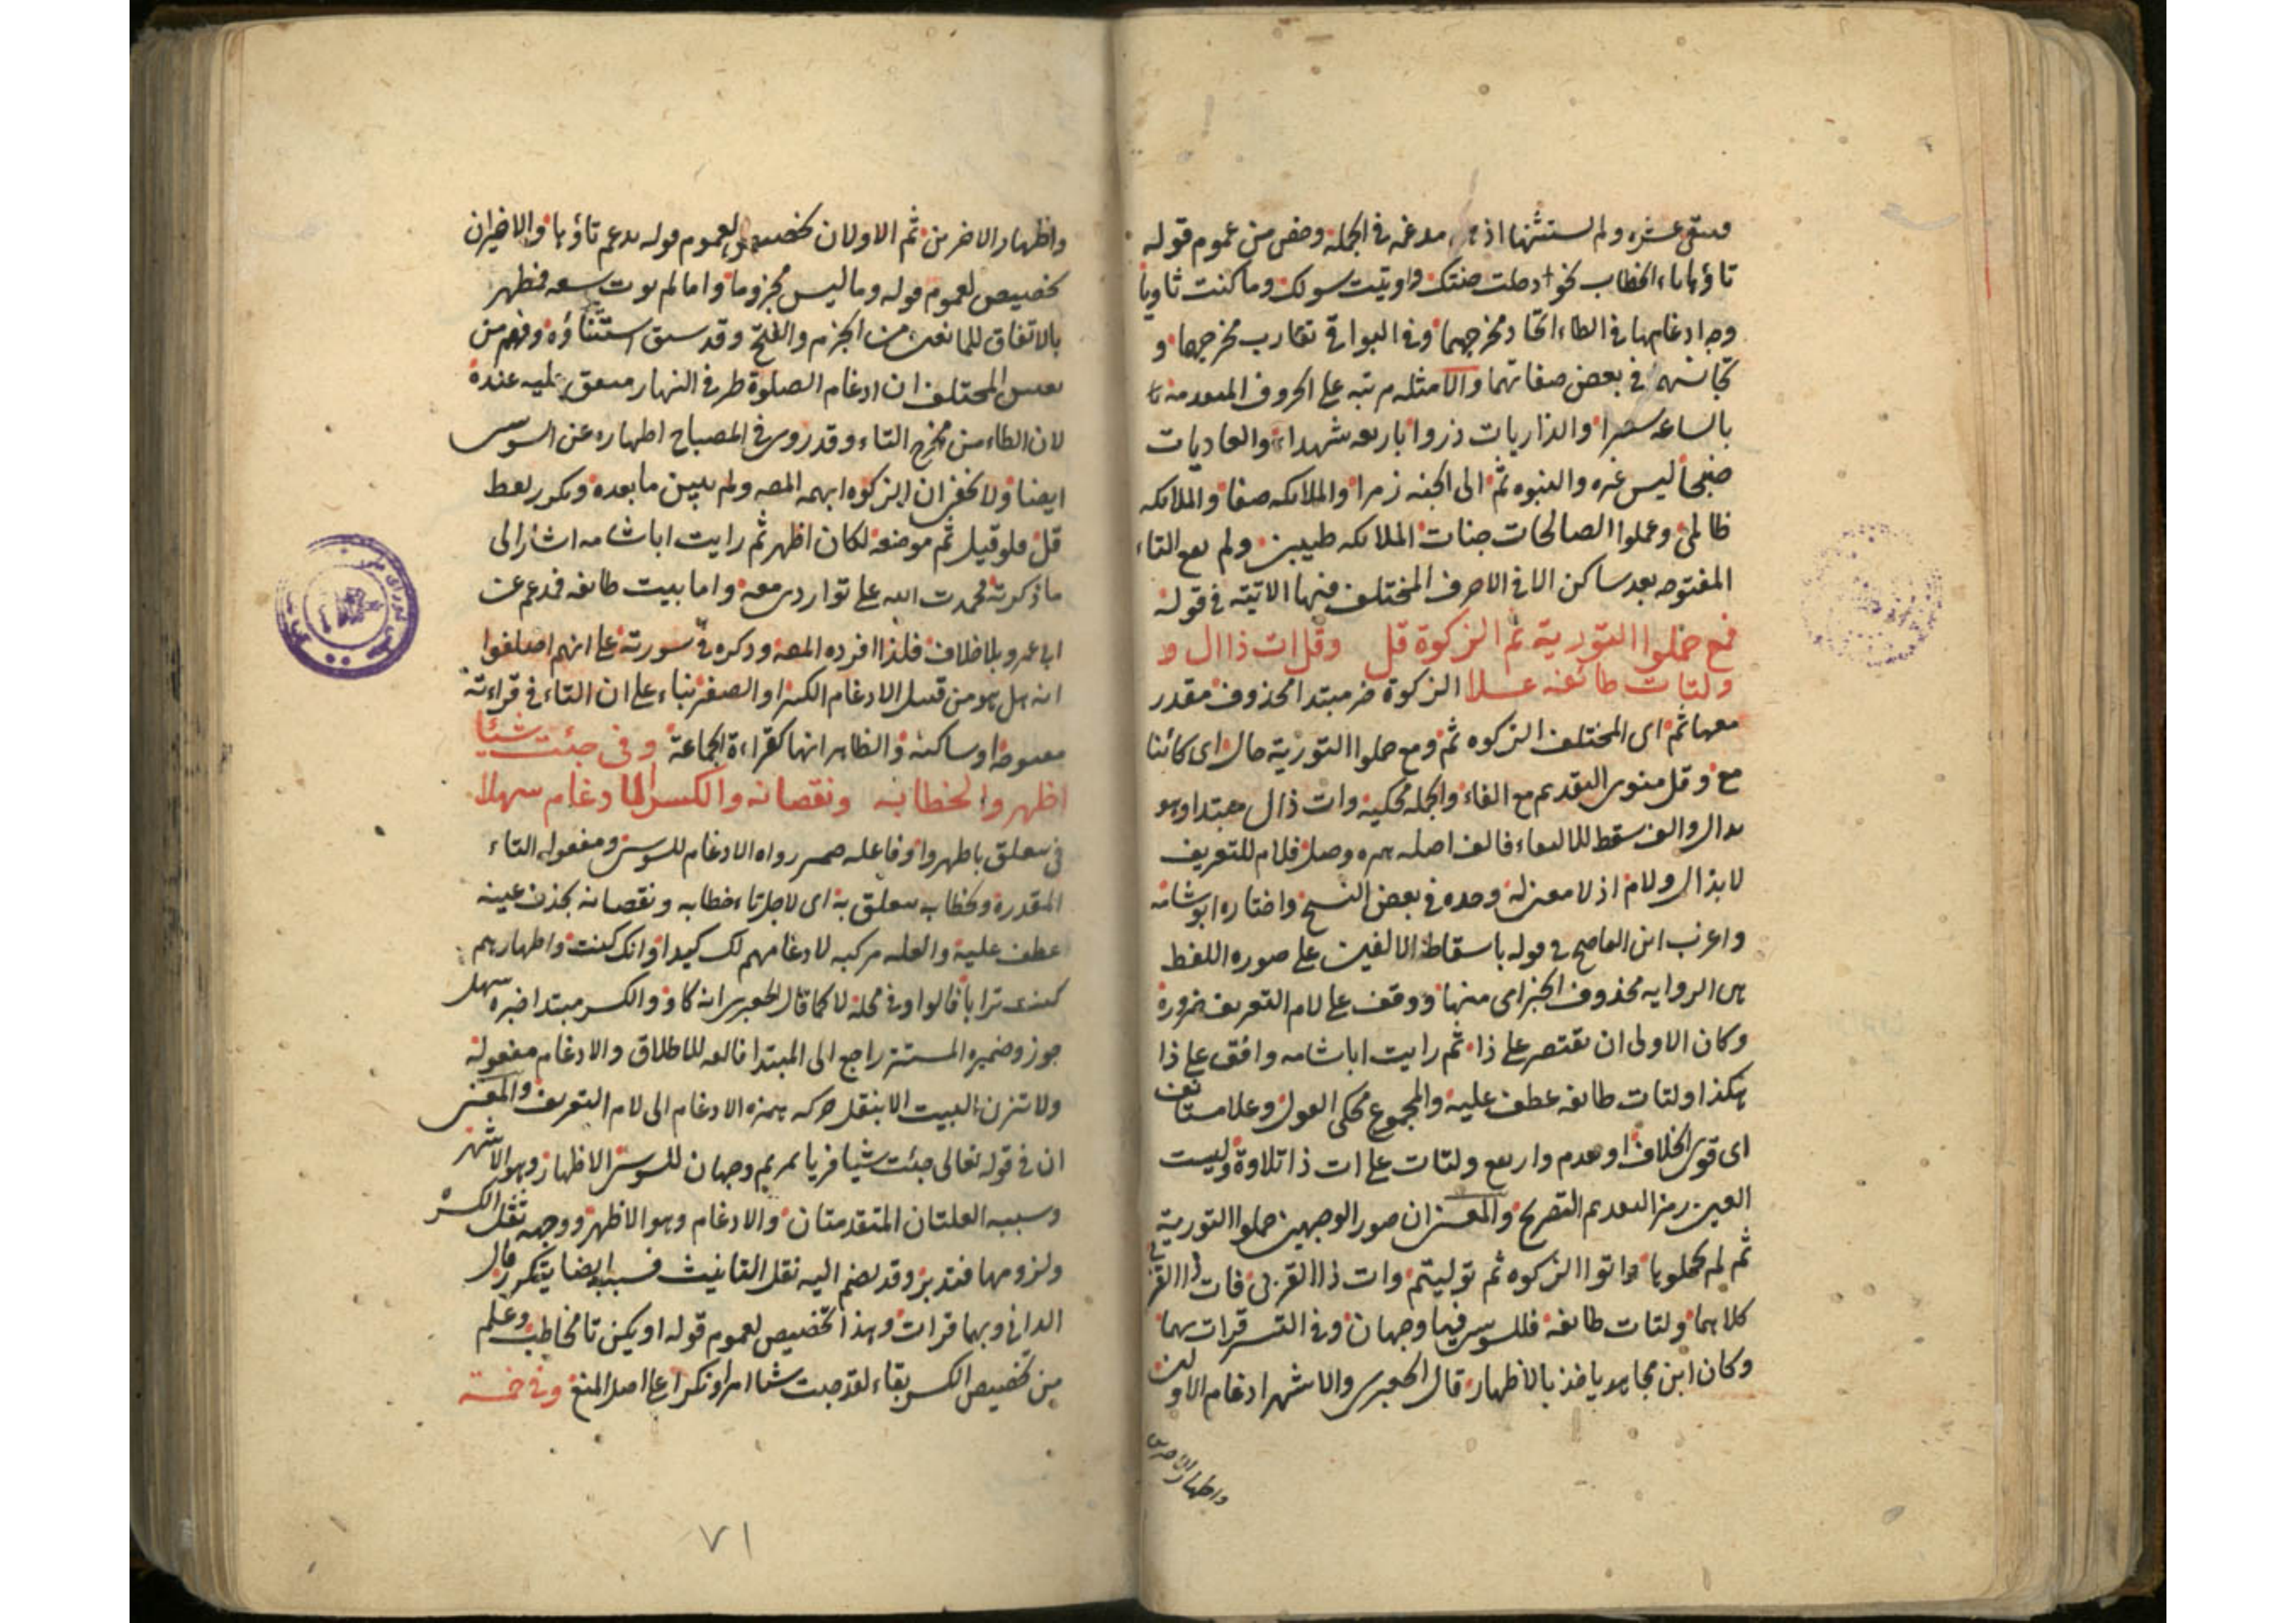 فيبقى عشرة ولم يستثنها اذ هي مدغمة في الجملة وخص من عموم قوله
تاؤها تاء الخطاب نحو دخلت جنتك واوتيت سولك وما كنت ثاويا
وجه ادغامها في الطاء اتحاد مخرجهما وفي البواقي تقارب مخرجها و
تجانسهم في بعض صفاتهما والامثلة مرتبة على الحروف المتقدمة
بالساعة سعيرا والذاريات ذروا باربعة شهداء والعاديات
ضبحا ليس غيره والنبوة ثم الى الجنة زمرا والملائكة صفا والملائكة
ظالمي وعملوا الصالحات جنات الملائكة طيبين ولم يقع التاء
المفتوحة بعد ساكن الا في الاحرف المختلف فيها الاتية في قوله
فمع حملوا التورية ثم الزكوة قل وقل ات ذا ال و
ولتات طائفة علا الزكوة خبر مبتدا محذوف مقدر
معها ثم اى المختلف الزكوة ثم ومع حملوا التورية حال اى كائنا
مع وقل منوى التقديم مع الفاء والجملة محكية وات ذال مبتدا وهو
بدال والف سقط للالتقاء فالف اصله همزه وصل فلام للتعريف
لا بذال ولام اذ لا معنى له وحده في بعض النسخ واختاره ابو شامه
واغرب ابن القاصح في قوله باسقاط الالفين على صورة اللفظ
هى الرواية محذوف الخبر اى منها ووقف على لام التعريف ضرورة
وكان الاولى ان يقتصر على ذا ثم رايت ابا شامه وافق على ذا
هكذا ولتات طائفة عطف عليه والمجموع محكى القول وعلا مستانف
اى قوى الخلاف او تقدم وارتفع ولتات على ات ذا تلاوة وليست
العين رمزا لتقديم التصريح والمعنى ان صور الوجهين حملوا التورية
ثم لم يحملوها واتوا الزكوة ثم توليتم وات ذا القربى فات ذا القربى
كلاهما ولتات طائفة فللسوسي فيها وجهان وفي التيسير قرات بهما
وكان ابن مجاهد ياخذ بالاظهار قال الجعبرى والاشهر ادغام الاولين
واظهار الاخرين
واظهار الاخرين ثم الاولان تخصيص لعموم قوله يدغم تاؤها والاخيران
تخصيص لعموم قوله وما ليس مجزوما واما لم يوت سعة فمظهر
بالاتفاق للمانعين من الجزم والفتح وقد سبق استثناؤه وفهم من
تعيين المختلف ان ادغام الصلوة طرفي النهار متفق عليه عنده
لان الطاء من مخرج التاء وقد روى في المصباح اظهاره عن السوسى
ايضا ولا يخفى ان الزكوة ابهمه المص ولم يبين ما بعده وتكرر لفظ
قل فلو قيل ثم موضعه لكان اظهر ثم رايت ابا شامه اشار الى
ما ذكرته فحمدت الله على تواردى معه واما بيت طائفة فمدغم عن
ابى عمرو بلا خلاف فلذا افرده المص وذكره في سورته على انهم اختلفوا
انه هل هو من قبيل الادغام الكبير او الصغير بناء على ان التاء في قراءته
مفتوحة او ساكنة والظاهر انها كقراءة الجماعة وفي جئت شيئا
اظهروا لخطابه ونقصانه والكسر الادغام سهلا
في متعلق باظهروا وفاعله ضمير رواة الادغام للسوسى ومفعوله التاء
المقدرة ولخطاب متعلق به اى لاجل تاء خطابه ونقصانه بحذف عينه
عطف عليه والعلة مركبة لادغامهم لك كيدا وانك كنت واظهارهم
كنت ترابا قالوا وفي محله لا كما قال الجعبرى انه كاو والكسر مبتدا خبره سهل
جوز وضميره المستتر راجع الى المبتدا فالفه للاطلاق والادغام مفعوله
ولا تزن البيت الا بنقل حركة همزه الادغام الى لام التعريف والمعنى
ان في قوله تعالى جئت شيئا فريا بمريم وجهان للسوسى الاظهار وهو الاشهر
وسببه العلتان المتقدمتان والادغام وهو الاظهر ووجهه ثقل الكسر
ولزومها فتدبر وقد يضم اليه ثقل التانيث فسببه ايضا يتكرر قال
الداني وبهما قرات وهذا تخصيص لعموم قوله او يكن تا مخاطب وعلم
من تخصيص الكسر بقاء لقد جئت شيئا امرا ونكرا على اصل المنع وفي خمسة
٧١